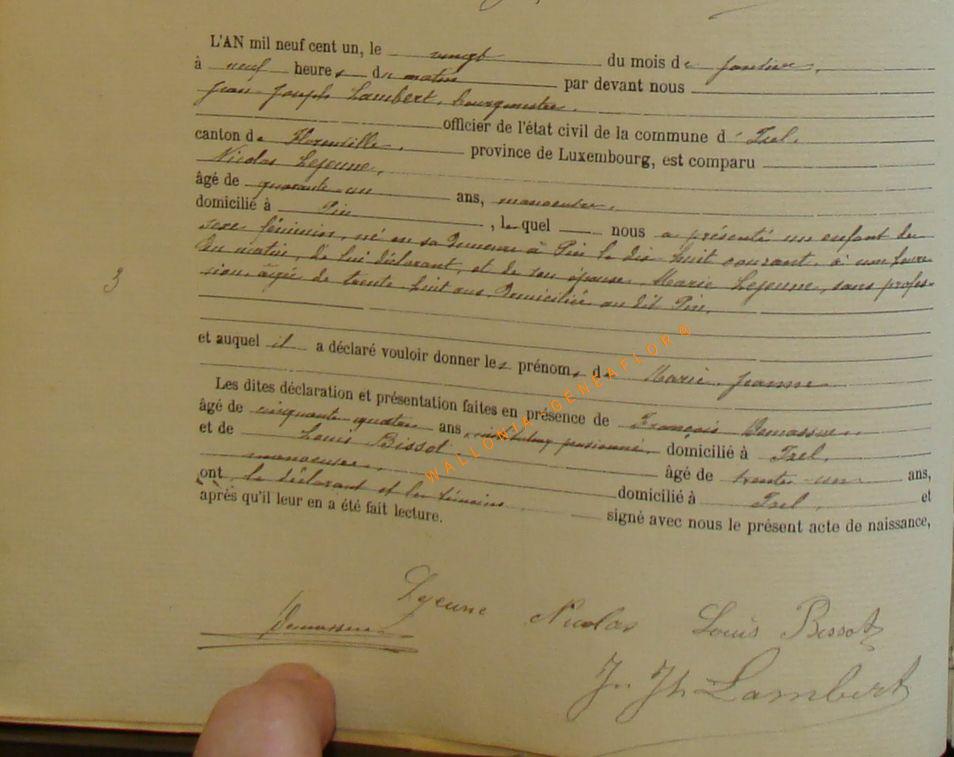 L'AN mil neuf cent un, le vingt du mois de janvier,
à neuf heures du matin par devant nous
Jean Joseph Lambert, bourgmestre,
officier de l'état civil de la commune d' Izel,
canton de Florenville, province de Luxembourg, est comparu
Nicolas Lejeune,
âgé de quarante un ans, manoeuvre,
domicilié à Pin, lequel nous a présenté un enfant du
sexe féminin, né en sa demeure à Pin le dix huit courant, à une heure
du matin, de lui déclarant, et de son épouse Marie Lejeune, sans profes-
sion, âgée de trente huit ans, domiciliée au dit Pin,
3
et auquel il a déclaré vouloir donner les prénoms de Marie Jeanne
Les dites déclaration et présentation faites en présence de François Demasure
âgé de cinquante quatre ans, pensionné, domicilié à Izel,
et de Louis Bissot
manoeuvre, âgé de trente-un ans,
domicilié à Izel, et
ont le déclarant et les témoins signé avec nous le présent acte de naissance,
après qu'il leur en a été fait lecture.
WALLONIA-GENEAFLOR®
Lejeune Nicolas Louis Bissot
J. Jh Lambert